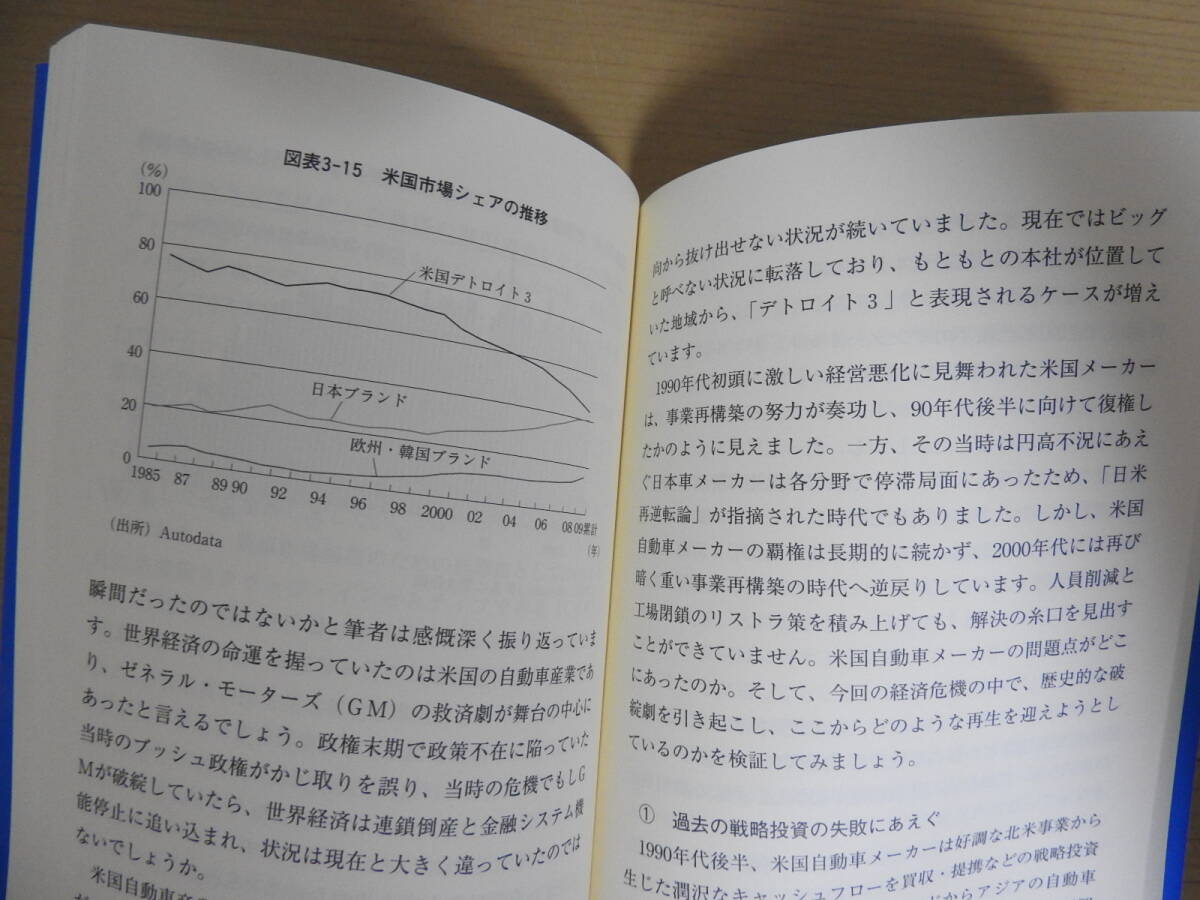 図表3-15　米国市場シェアの推移
(%)
100
80
60
40
20
0
米国デトロイト3
日本ブランド
欧州・韓国ブランド
1985 87 89 90 92 94 96 98 2000 02 04 06 08 09累計
(年)
（出所）Autodata
瞬間だったのではないかと筆者は感慨深く振り返っていま
す。世界経済の命運を握っていたのは米国の自動車産業であ
り、ゼネラル・モーターズ（GM）の救済劇が舞台の中心に
あったと言えるでしょう。政権末期で政策不在に陥っていた
当時のブッシュ政権がかじ取りを誤り、当時の危機でもしG
Mが破綻していたら、世界経済は連鎖倒産と金融システム機
能停止に追い込まれ、状況は現在と大きく違っていたのでは
ないでしょうか。
米国自動車産
向から抜け出せない状況が続いていました。現在ではビッグ
と呼べない状況に転落しており、もともとの本社が位置して
いた地域から、「デトロイト3」と表現されるケースが増え
ています。
1990年代初頭に激しい経営悪化に見舞われた米国メーカー
は、事業再構築の努力が奏功し、90年代後半に向けて復権し
たかのように見えました。一方、その当時は円高不況にあえ
ぐ日本車メーカーは各分野で停滞局面にあったため、「日米
再逆転論」が指摘された時代でもありました。しかし、米国
自動車メーカーの覇権は長期的に続かず、2000年代には再び
暗く重い事業再構築の時代へ逆戻りしています。人員削減と
工場閉鎖のリストラ策を積み上げても、解決の糸口を見出す
ことができていません。米国自動車メーカーの問題点がどこ
にあったのか。そして、今回の経済危機の中で、歴史的な破
綻劇を引き起こし、ここからどのような再生を迎えようとし
ているのかを検証してみましょう。
① 過去の戦略投資の失敗にあえぐ
1990年代後半、米国自動車メーカーは好調な北米事業から
生じた潤沢なキャッシュフローを買収・提携などの戦略投資
からアジアの自動車